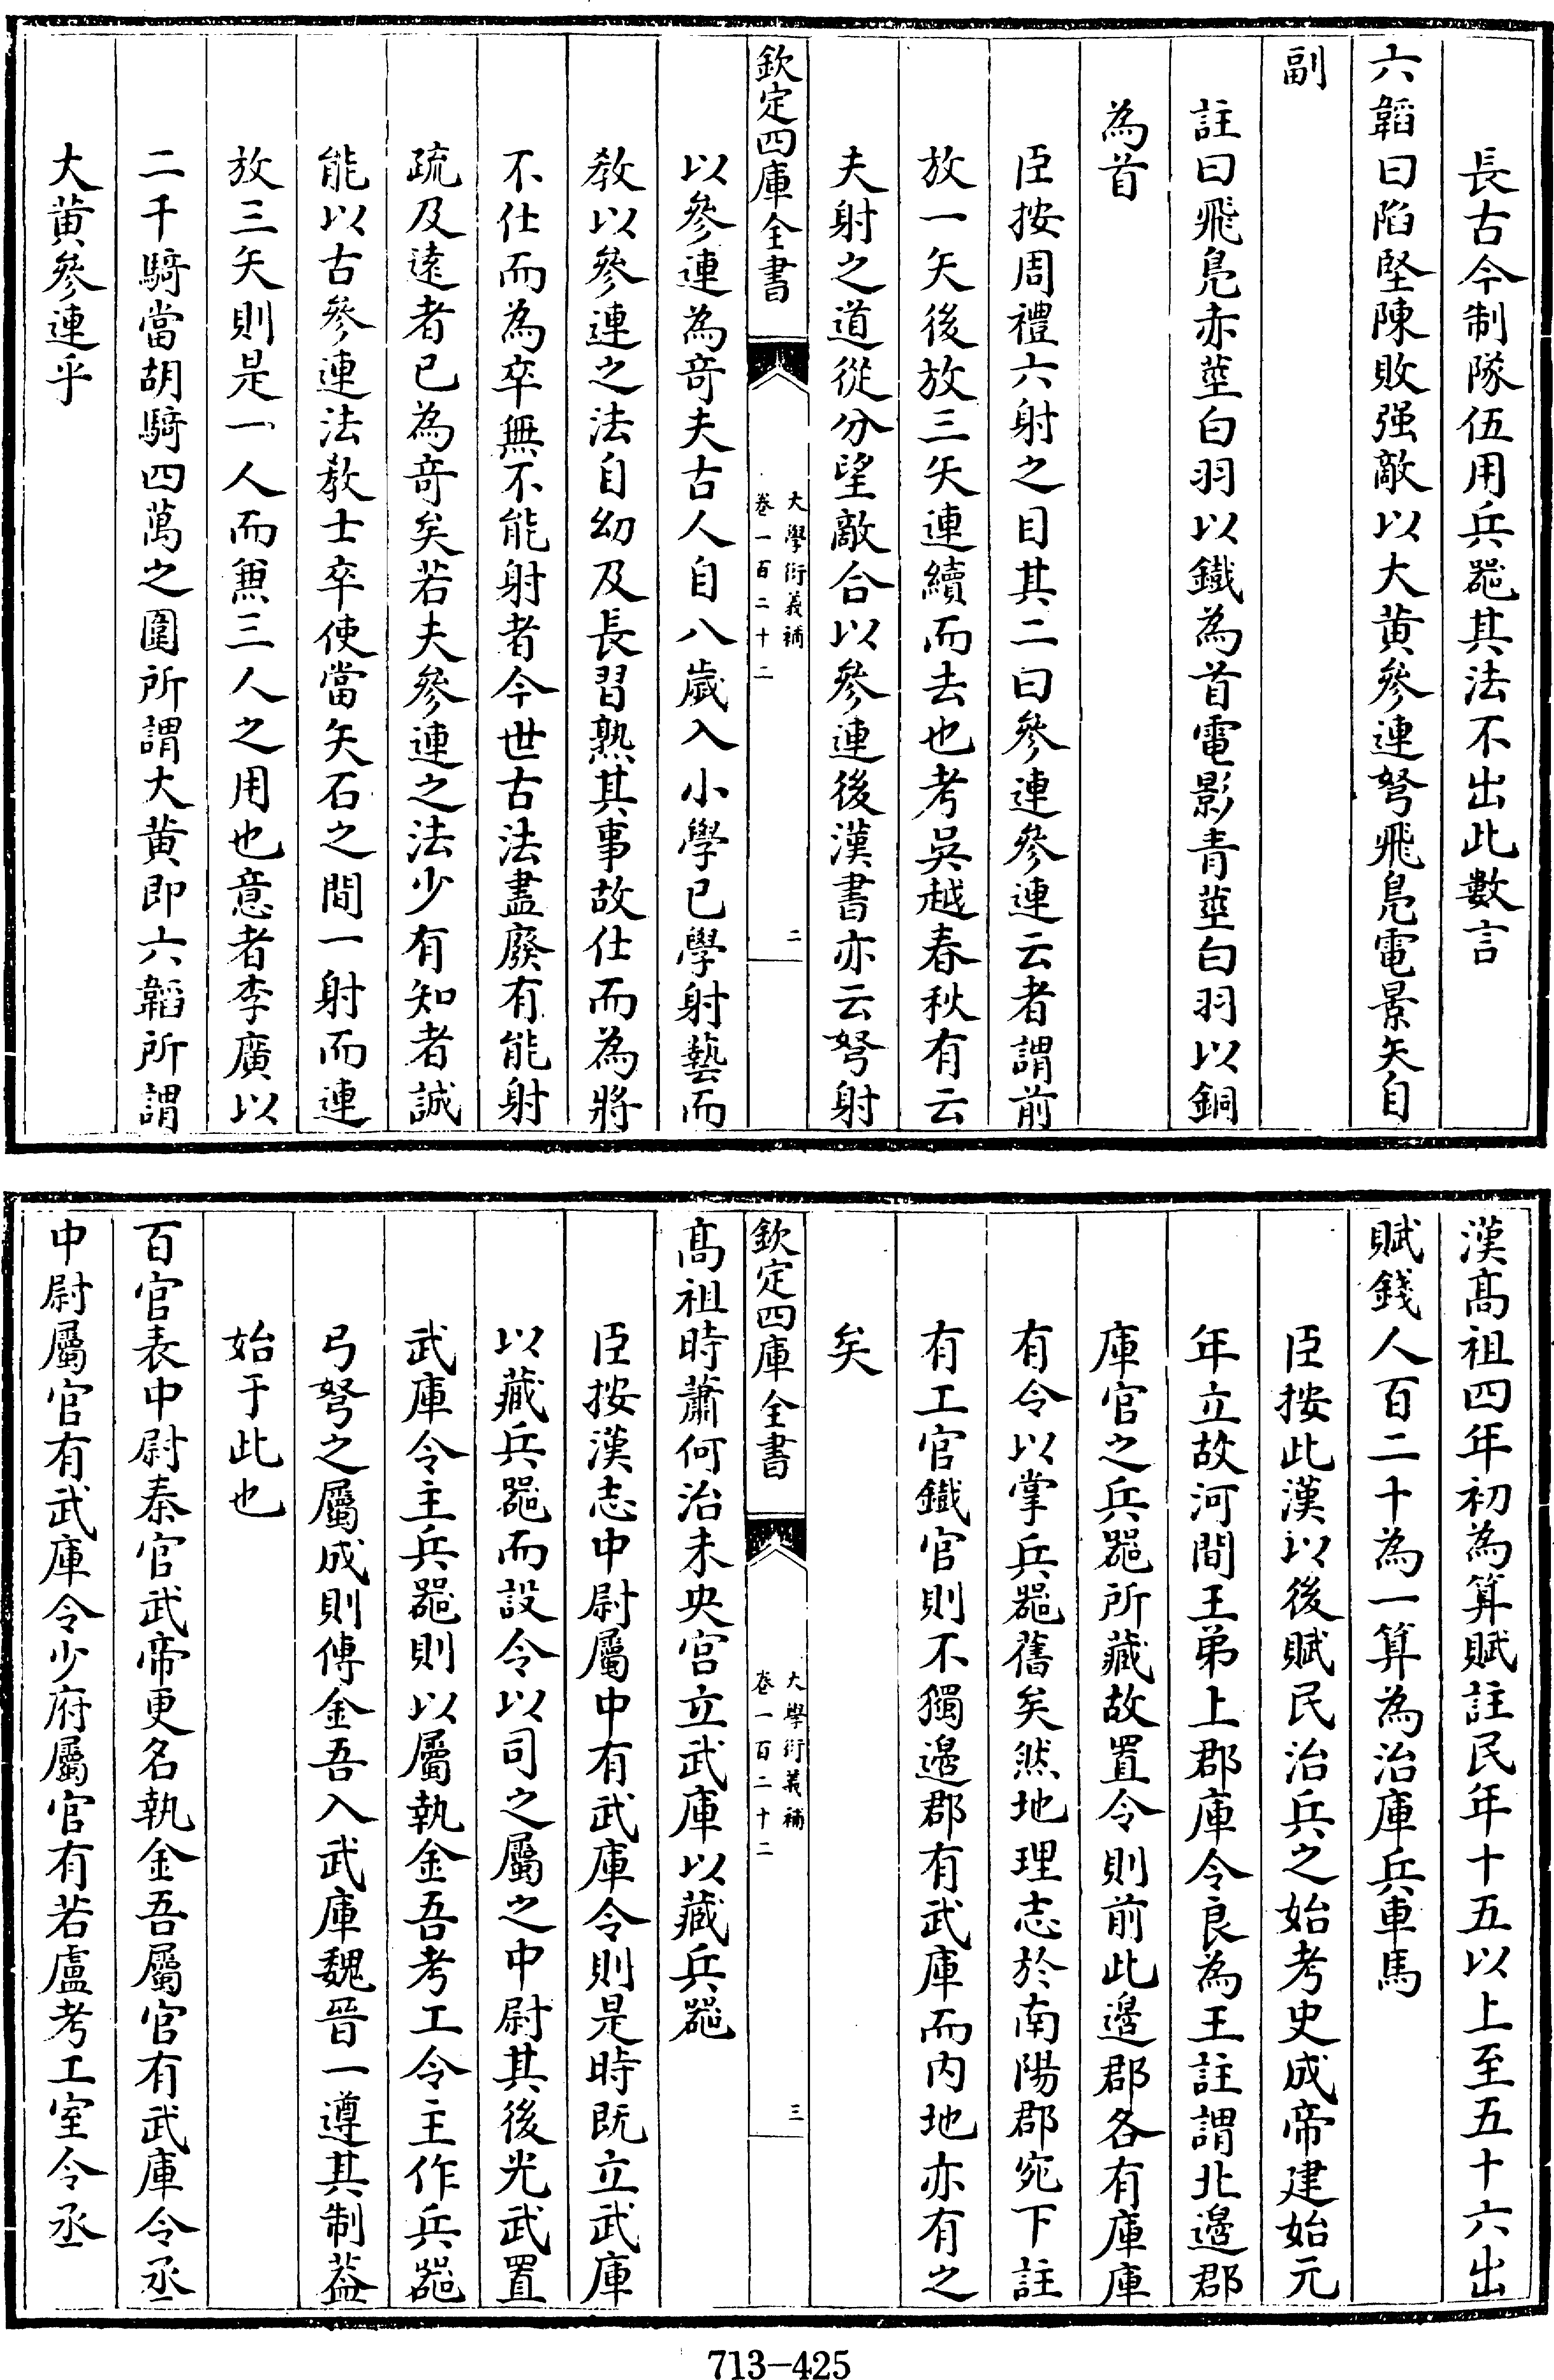 長古今制隊伍用兵器其法不出此數言
六韜曰陷堅陳敗强敵以大黄參連弩飛鳬電景矢自
副
註曰飛鳬赤莖白羽以鐵為首電影青莖白羽以銅
為首
臣按周禮六射之目其二曰參連參連云者謂前
放一矢後放三矢連續而去也考吳越春秋有云
夫射之道從分望敵合以參連後漢書亦云弩射
欽定四庫全書
大學衍義補
卷一百二十二
二
以參連為竒夫古人自八歲入小學已學射藝而
教以參連之法自幼及長習熟其事故仕而為將
不仕而為卒無不能射者今世古法盡廢有能射
疏及遠者已為竒矣若夫參連之法少有知者誠
能以古參連法教士卒使當矢石之間一射而連
放三矢則是一人而兼三人之用也意者李廣以
二千騎當胡騎四萬之圍所謂大黄即六韜所謂
大黄參連乎
漢髙祖四年初為算賦註民年十五以上至五十六出
賦錢人百二十為一算為治庫兵車馬
臣按此漢以後賦民治兵之始考史成帝建始元
年立故河間王弟上郡庫令良為王註謂北邊郡
庫官之兵器所藏故置令則前此邊郡各有庫庫
有令以掌兵器舊矣然地理志於南陽郡宛下註
有工官鐵官則不獨邊郡有武庫而内地亦有之
矣
欽定四庫全書
大學衍義補
卷一百二十二
三
髙祖時蕭何治未央宫立武庫以藏兵器
臣按漢志中尉屬中有武庫令則是時既立武庫
以藏兵器而設令以司之屬之中尉其後光武置
武庫令主兵器則以屬執金吾考工令主作兵器
弓弩之屬成則傅金吾入武庫魏晉一遵其制葢
始于此也
百官表中尉秦官武帝更名執金吾屬官有武庫令丞
中尉屬官有武庫令少府屬官有若盧考工室令丞
713-425